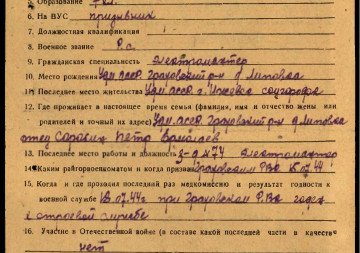 5. Образование
6. На ВУС призывник
7. Должностная квалификация
8. Военное звание Р.с.
9. Гражданская специальность электромонтер
10. Место рождения Удм.АССР Граховский р-н д. Липовка
11. Последнее место жительства Удм.АССР г. Ижевск соцгород
12. Где проживает в настоящее время семья (фамилия, имя и отчество жены или
родителей и точный их адрес) Удм.АССР Граховский р-н д. Липовка
отец Петр
13. Последнее место работы и должность з-д №74 электромонтер
14. Каким райгорвоенкоматом и когда призван Граховским РВК 18.07.44
15. Когда и где проходил последний раз медкомиссию и результат годности к
военной службе 18.07.44г при Граховском РВК годен
к строевой службе
16. Участие в Отечественной войне (в составе какой последней части и качестве
нет